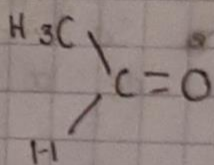 H3C
C=O
H